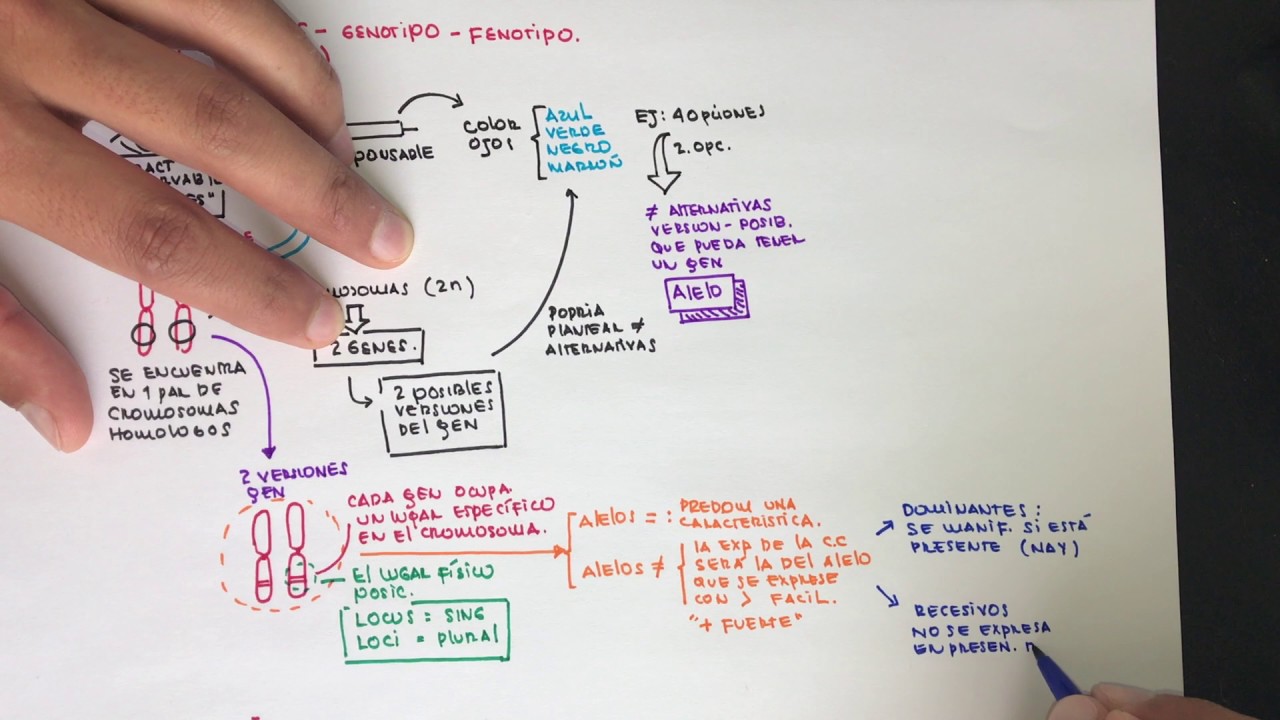 - GENOTIPO - FENOTIPO.
COLOR
OJOS
AZUL
VERDE
NEGRO
MARRON
EJ: 4 OPCIONES
2. OPC.
≠ ALTERNATIVAS
VERSION - POSIB.
QUE PUEDA TENER
UN GEN
Alelo
(2n)
2 GENES.
2 POSIBLES
VERSIONES
DEL GEN
PODRIA
PLANTEAR ≠
ALTERNATIVAS
SE ENCUENTRA
EN 1 PAR DE
CROMOSOMAS
HOMOLOGOS
2 VERSIONES
GEN
CADA GEN OCUPA
UN LUGAR ESPECÍFICO
EN EL CROMOSOMA.
El LUGAR FÍSICO
POSIC.
LOCUS = SING
LOCI = PLURAL
Alelos = : PREDOM UNA
CARACTERISTICA.
Alelos ≠
LA EXP DE LA C.C
SERÁ LA DEL Alelo
QUE SE EXPRESE
CON > FACIL.
"+ FUERTE"
DOMINANTES :
SE MANIF. SI ESTÁ
PRESENTE (NAY)
RECESIVOS
NO SE EXPRESA
EN PRESEN.